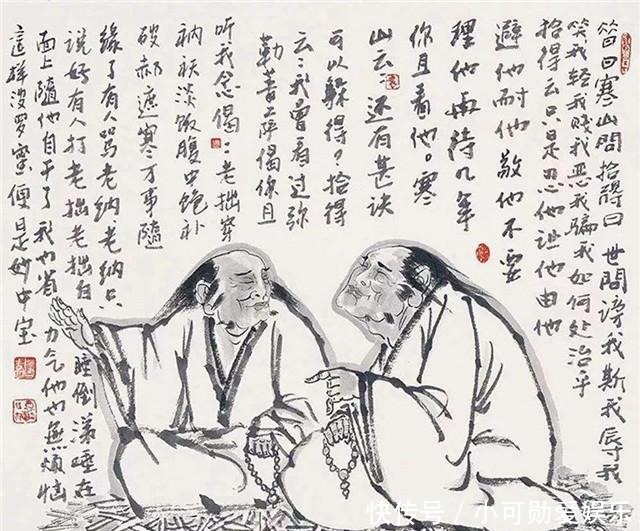 昔日寒山問拾得曰世間謗我欺我辱我
笑我輕我賤我惡我騙我如何处治乎
拾得云只是忍他讓他由他
避他耐他敬他不要
理他再待几年
你且看他。寒
山云：还有甚诀
可以躲得？拾得
云：我曾看过弥
勒菩薩偈你且
听我念偈：老拙穿
衲袄淡饭腹中饱补
破好遮寒万事随
缘了有人骂老衲老衲只
说好有人打老拙老拙自
睡倒漾唾在
面上随他自干了我也省
力气他也無煩恼
這样波罗蜜便是妙中宝
快传号 / 小可勋爱娱乐